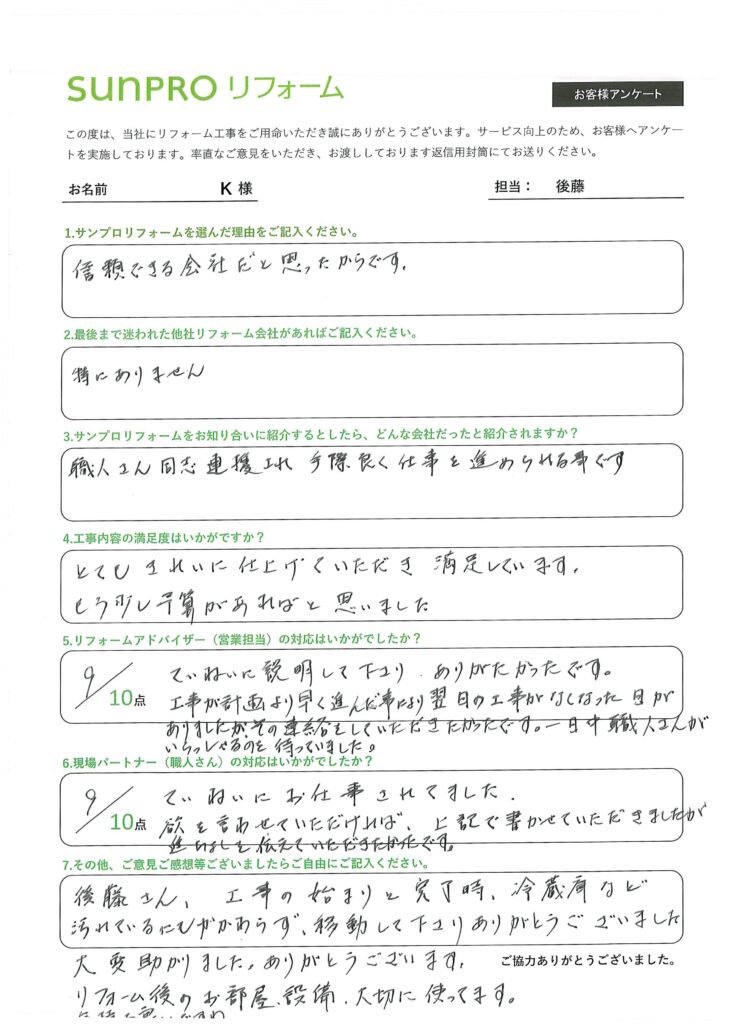 sunPRO リフォーム
お客様アンケート
この度は、当社にリフォーム工事をご用命いただき誠にありがとうございます。サービス向上のため、お客様へアンケー
トを実施しております。率直なご意見をいただき、お渡ししております返信用封筒にてお送りください。
お名前 K 様 担当： 後藤
1.サンプロリフォームを選んだ理由をご記入ください。
信頼できる会社だと思ったからです。
2.最後まで迷われた他社リフォーム会社があればご記入ください。
特にありません
3.サンプロリフォームをお知り合いに紹介するとしたら、どんな会社だったと紹介されますか？
職人さん同志連携され 手際良く仕事を進められる事です
4.工事内容の満足度はいかがですか？
とてもきれいに仕上げていただき 満足しています。
もう少し予算があればと思いました
5.リフォームアドバイザー（営業担当）の対応はいかがでしたか？
9／10点 ていねいに説明して下さり、ありがたかったです。
工事が計画より早く進んだ事により翌日の工事がなくなった日が
ありましたがその連絡をしていただきたかったです。一日中職人さんが
いらっしゃるのを待っていました。
6.現場パートナー（職人さん）の対応はいかがでしたか？
9／10点 ていねいにお仕事されてました。
欲を言わせていただければ、上記で書かせていただきましたが
進み具合を伝えていただきたかったです。
7.その他、ご意見ご感想等ございましたらご自由にご記入ください。
後藤さん、工事の始まりと完了時、冷蔵庫など
汚れているにもかかわらず、移動して下さりありがとうございました
大変助かりました。ありがとうございます。
ご協力ありがとうございました。
リフォーム後のお部屋、設備、大切に使ってます。